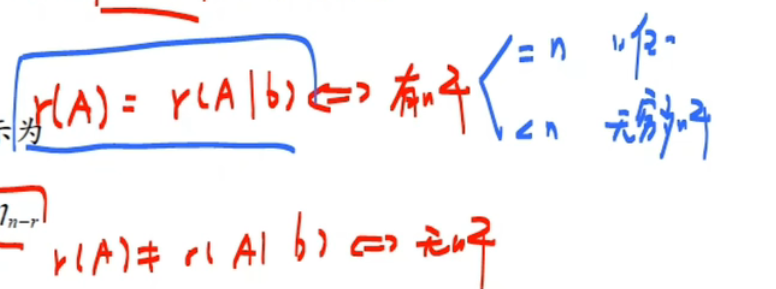 r(A) = r(A|b) ⇔ 有解 = n 唯一
为 < n 无穷多解
n-r
r(A) ≠ r(A|b) ⇔ 无解